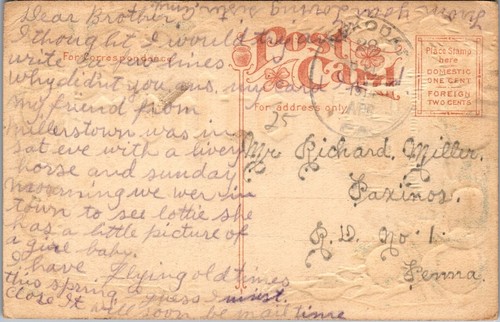 Dear Brother
I thought I would try and
write a few lines
why didn't you ans. my card
my friend from
Millerstown was in
sat eve with a livery
horse and sunday
mourning we wer in
town to see lottie she
has a little picture of
a girl baby.
I have flying old times
this spring I guess I must
close it will soon be mail time
from
Post
Card
For Correspondence
For address only
Place Stamp
here
DOMESTIC
ONE CENT
FOREIGN
TWO CENTS
25
Mr Richard. Miller.
Paxinos.
R. D. No 1.
Penna.